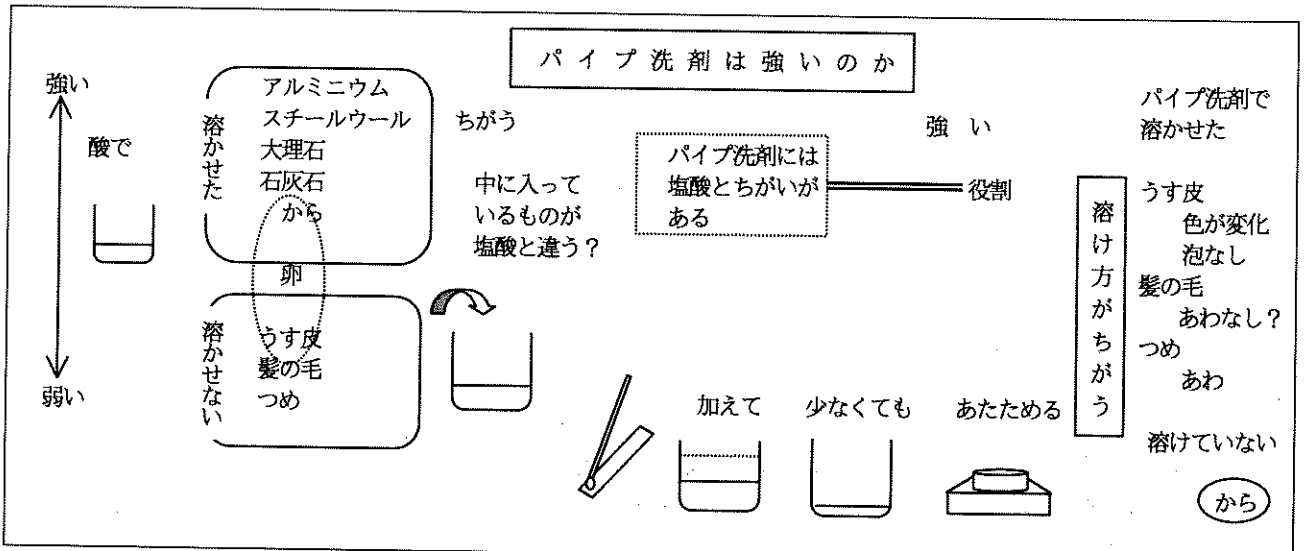 パイプ洗剤は強いのか
強い
弱い
酸で
溶かせた
アルミニウム
スチールウール
大理石
石灰石
から
卵
溶かせない
うす皮
髪の毛
つめ
ちがう
中に入って
いるものが
塩酸と違う?
パイプ洗剤には
塩酸とちがいが
ある
強い
役割
加えて
少なくても
あたためる
溶け方がちがう
パイプ洗剤で
溶かせた
うす皮
色が変化
泡なし
髪の毛
あわなし?
つめ
あわ
溶けていない
から